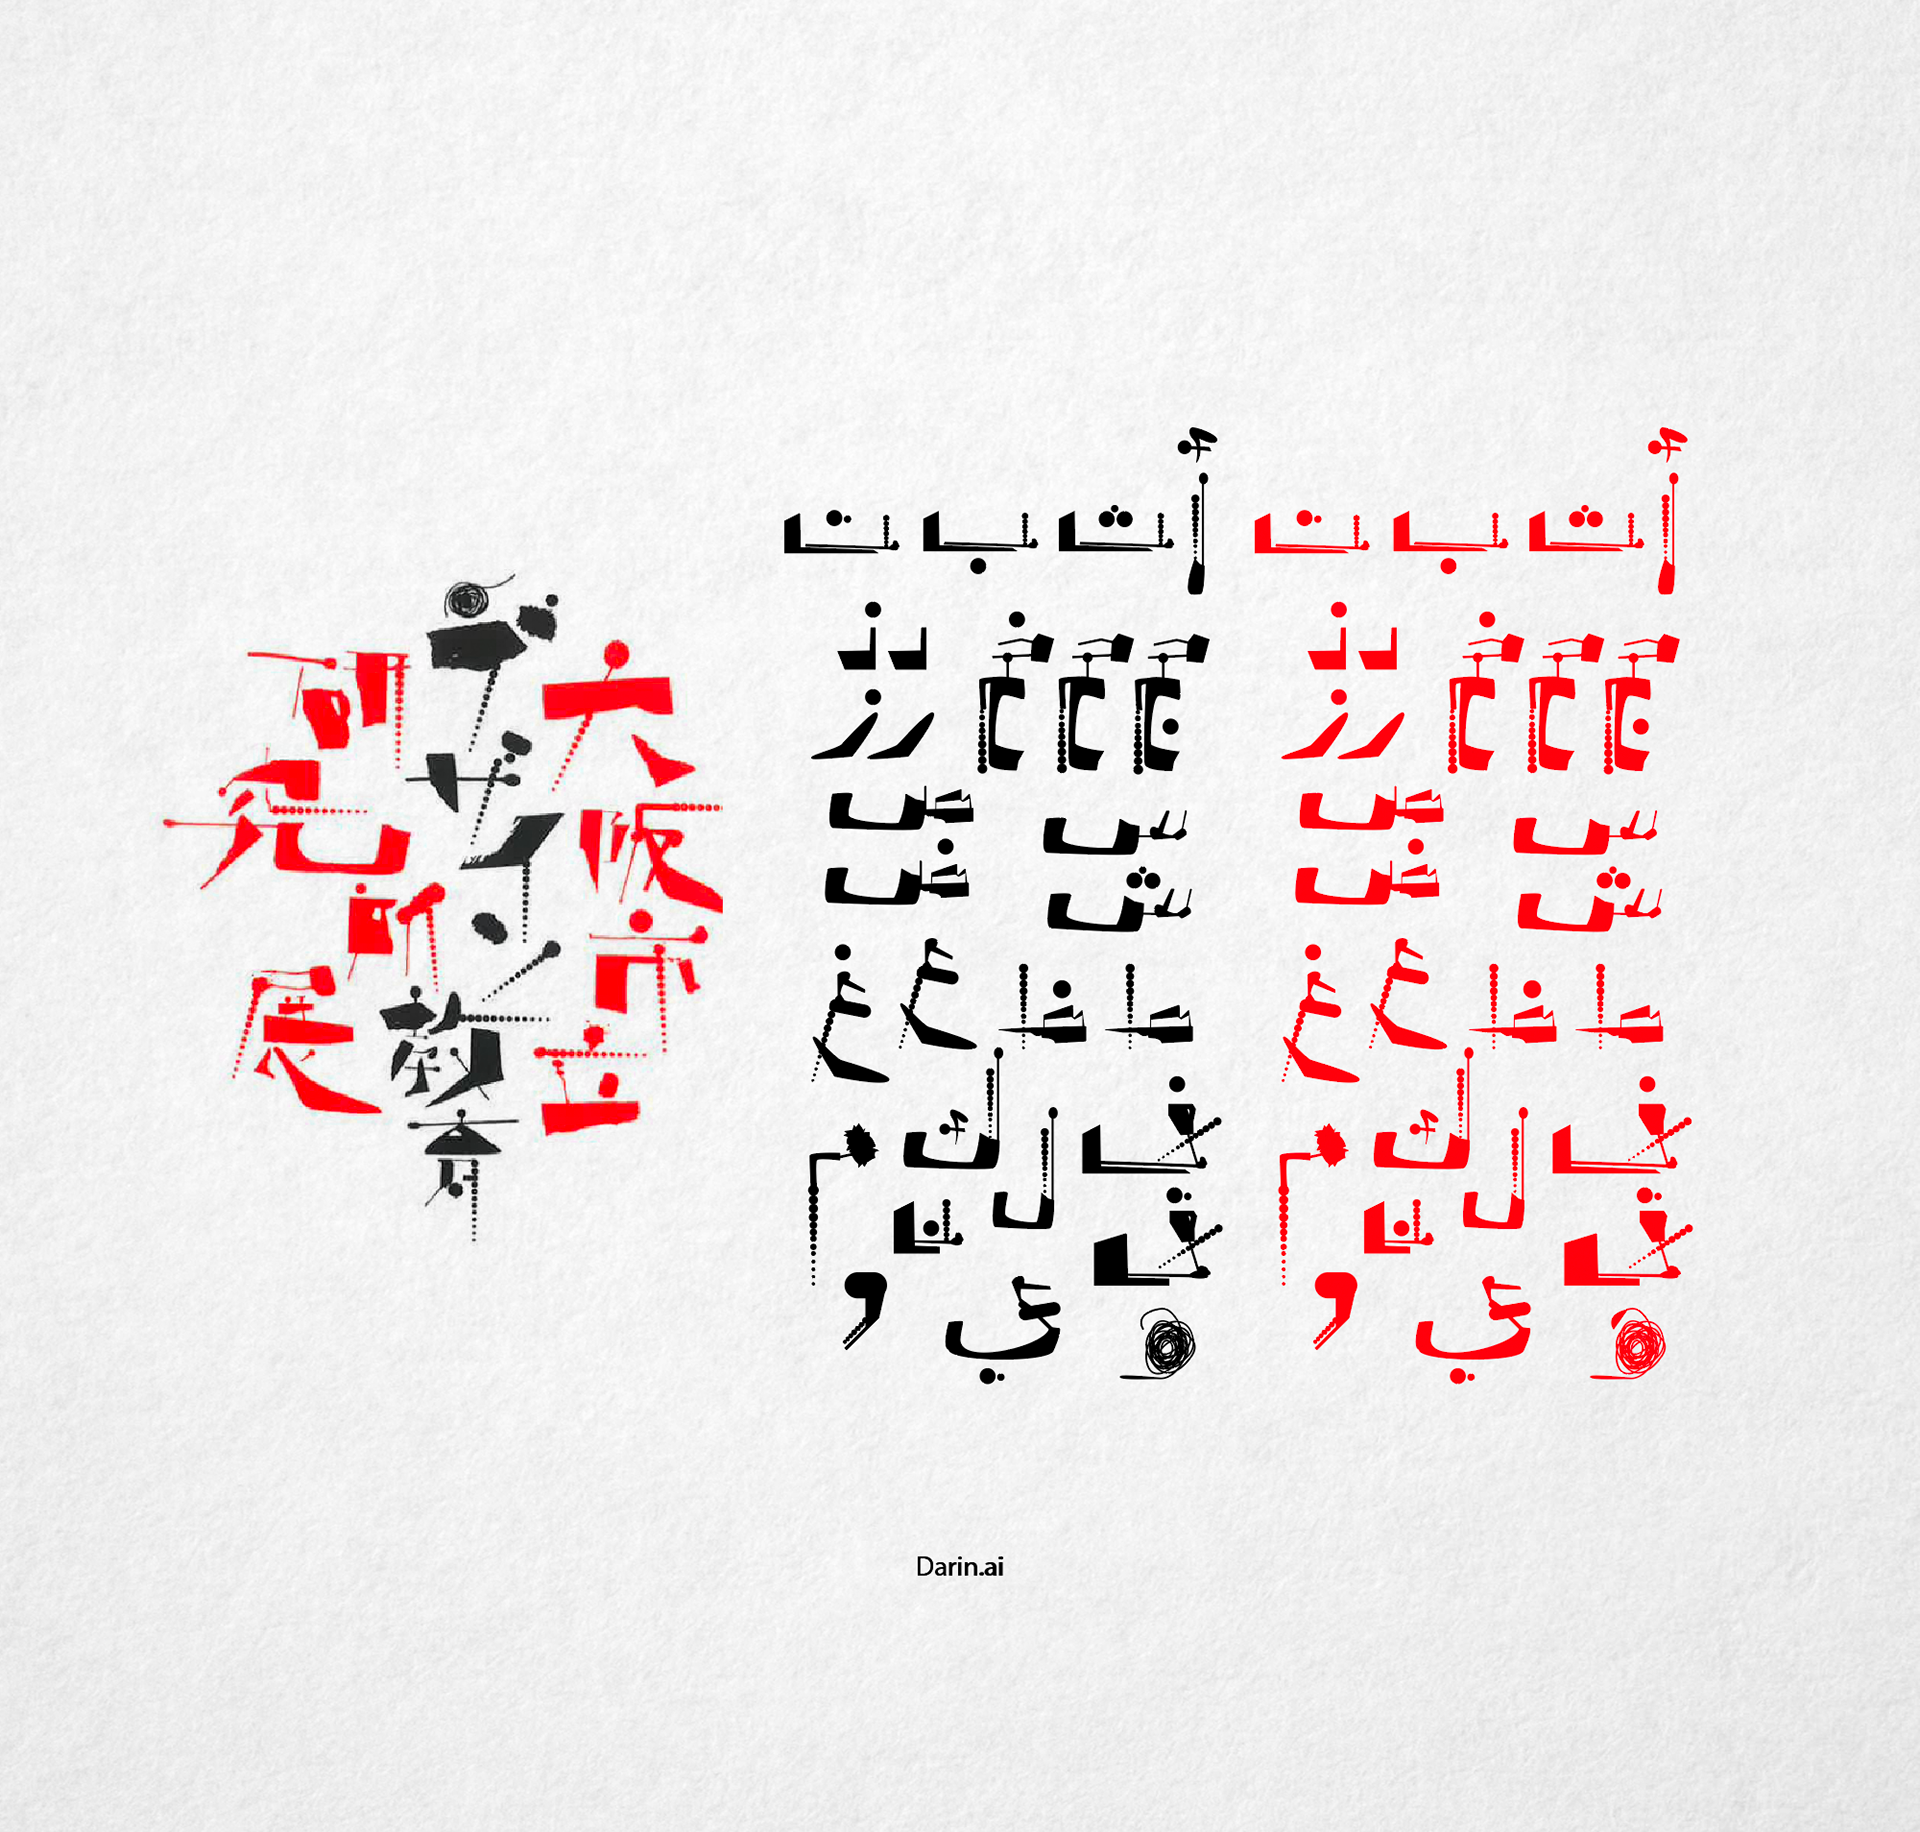 大阪市立
デザイン教育
研究所展
أ ث ب ت
ج ح خ د ذ
ر ز
س ص
ش ض
ط ظ ع غ
ف ل ك م
ق ن
ه ي و
أ ث ب ت
ج ح خ د ذ
ر ز
س ص
ش ض
ط ظ ع غ
ف ل ك م
ق ن
ه ي و
Darin.ai